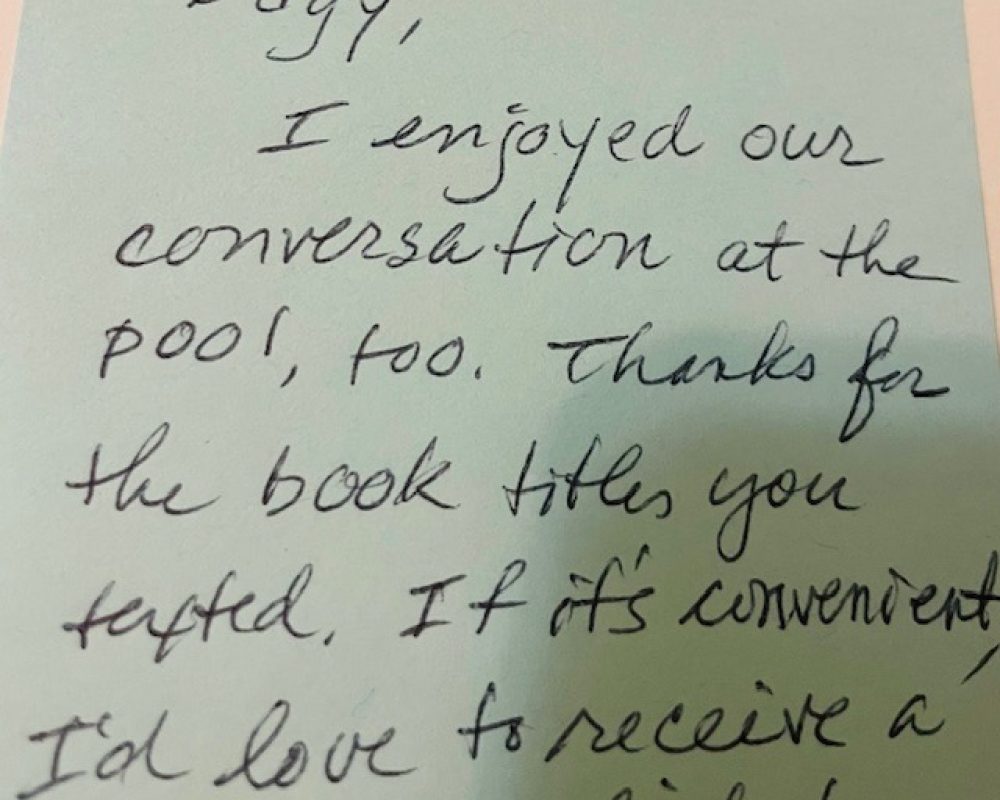 I enjoyed our
conversation at the
pool, too. Thanks for
the book titles you
texted. If it's convenient,
I'd love to receive a